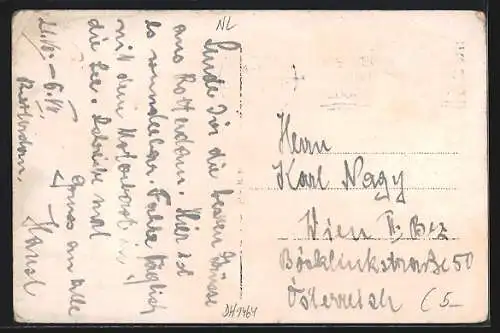 NL
Sende Dir die besten Grüsse
aus Rotterdam. Hier ist
es wunderbar. Fahre täglich
mit dem Motorboot in
die See. Schreibe mal
Gruss an Alle
Hansl
Rotterdam,
Herrn
Karl Nagy
Wien II. Bez
Böcklinstraße 50
Österreich
DH1464
(5-